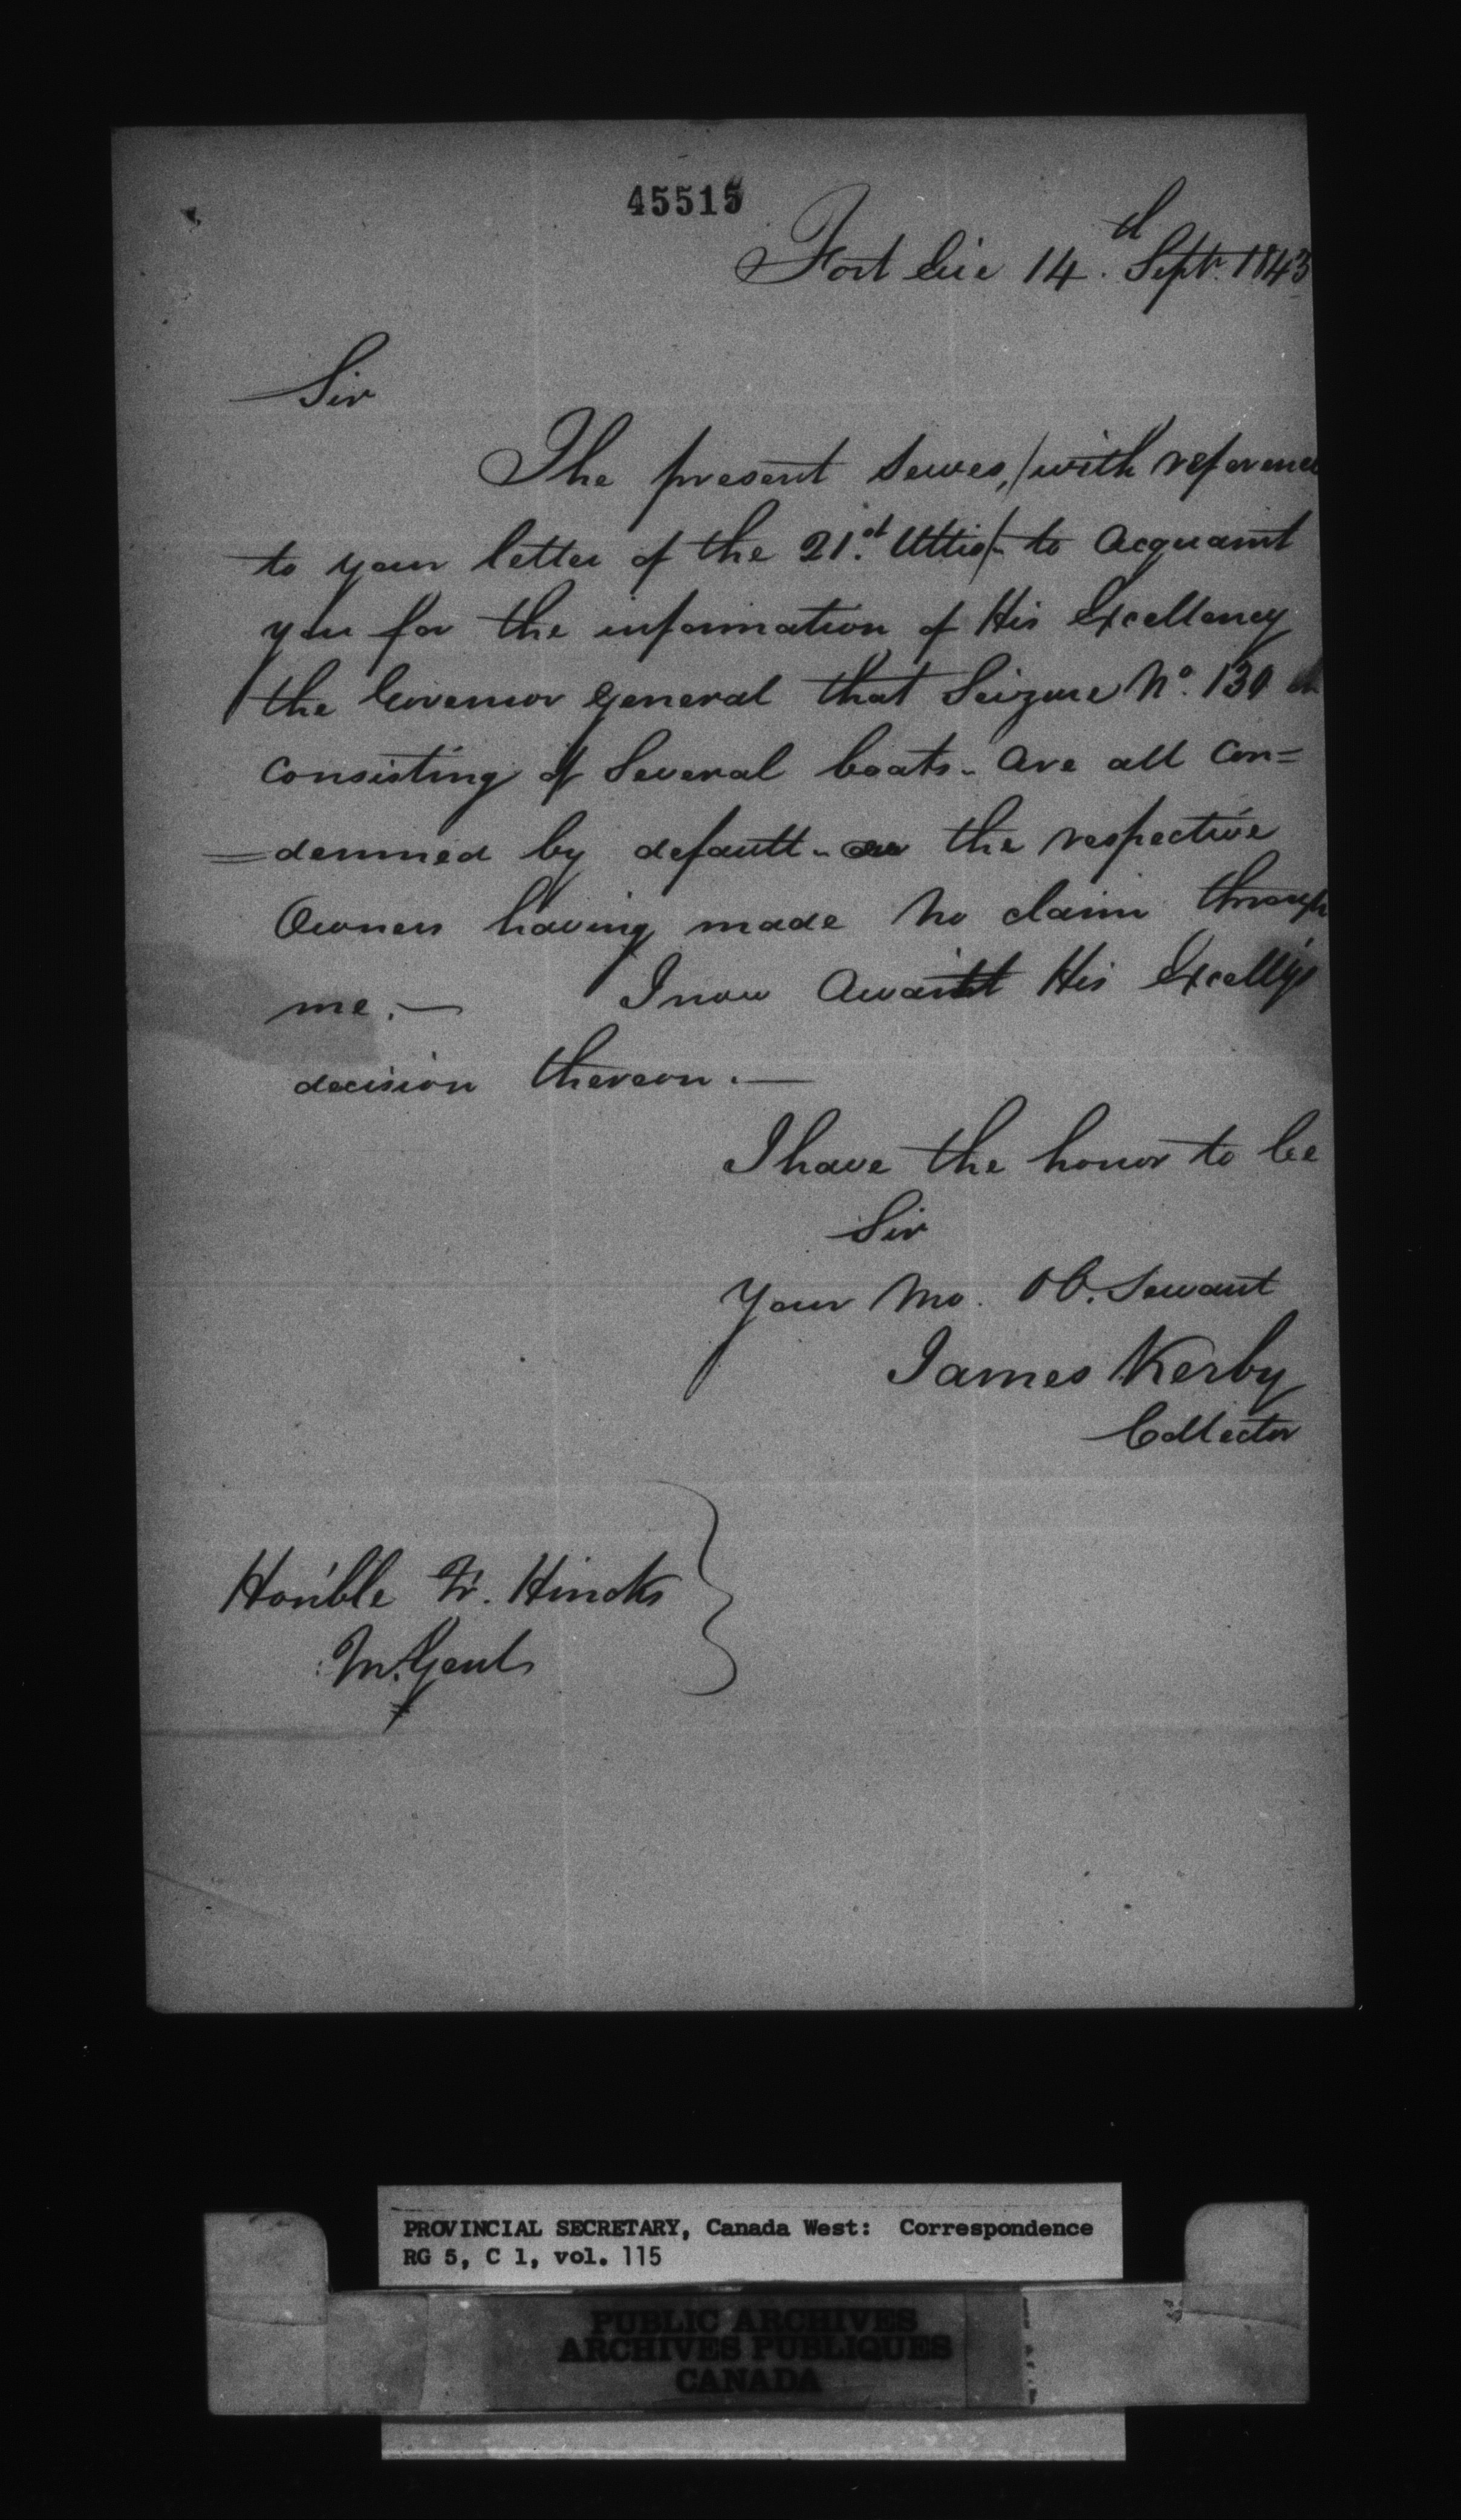 45515
Fort Erie 14th Septr. 1843
Sir
The present serves, / with reference
to your letter of the 21st. Ultio / - to acquaint
you for the information of His Excellency
the Governor General that Seizure No. 130
consisting of Several boats - are all con=
=demned by default - the respective
Owners having made no claim through
me. — I now await His Excelly's
decision thereon. —
I have the honor to be
Sir
Your Mo. Ob. Servant
James Kerby
Collector
Hon'ble Fr. Hincks
PROVINCIAL SECRETARY, Canada West: Correspondence
RG 5, C 1, vol. 115
PUBLIC ARCHIVES
ARCHIVES PUBLIQUES
CANADA